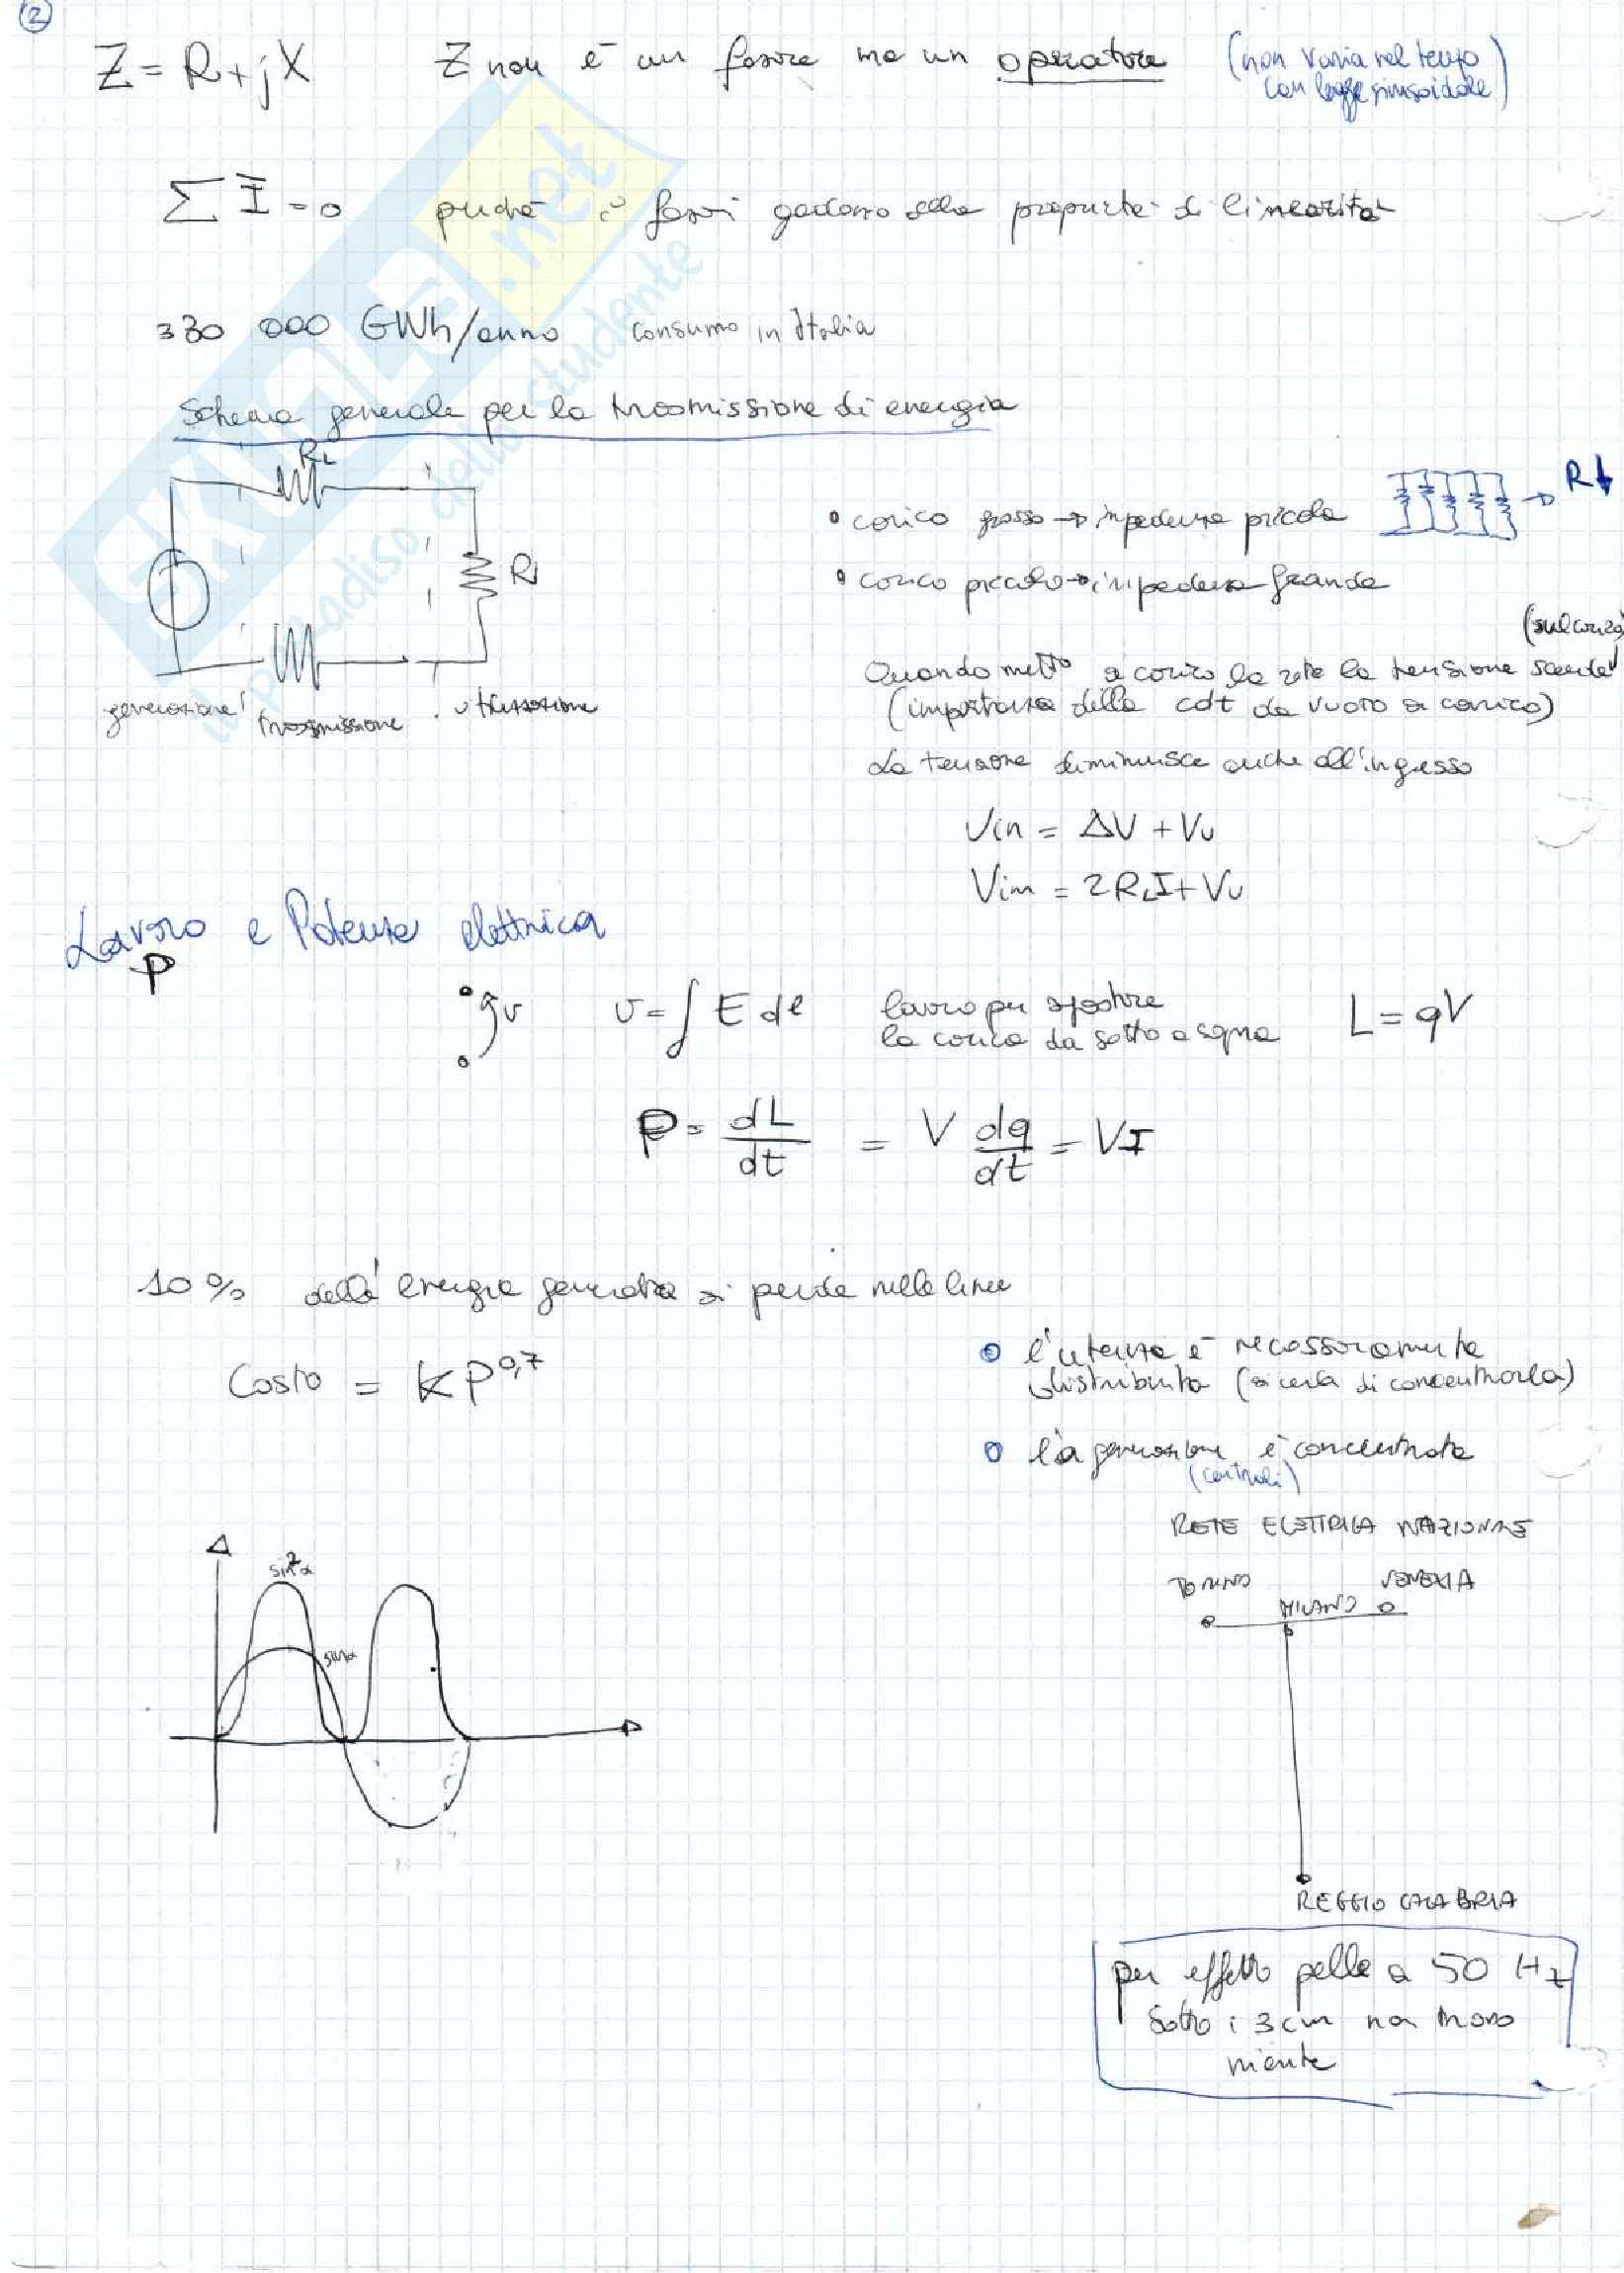 2
Z = R + jX Z non è un fasore ma un operatore (non varia nel tempo
con legge sinusoidale)
∑ Ī = 0 perché i fasori godono della proprietà di linearità
330 000 GWh/anno consumo in Italia
Schema generale per la trasmissione di energia
RL
R
generazione trasmissione utilizzazione
• carico grosso → impedenza piccola → R↓
• carico piccolo → impedenza grande
(sul carico)
Quando metto a carico la rete la tensione scende
(importanza della cdt da vuoto a carico)
La tensione diminuisce anche all'ingresso
Vin = ΔV + Vu
Vin = 2RLI + Vu
Lavoro e Potenza elettrica
P
v v = ∫ E dl lavoro per spostare
la carica da sotto a sopra L = qV
P = dL/dt = V dq/dt = VI
10% dell'energia generata si perde nelle linee
Costo = K P^0,7
• l'utenza è necessariamente
distribuita (si cerca di concentrarla)
• la generazione è concentrata
(centrali)
RETE ELETTRICA NAZIONALE
TORINO MILANO VENEZIA
sin²α
sinα
REGGIO CALABRIA
per effetto pelle a 50 Hz
sotto i 3 cm non trovo
niente
SKUOLA.net
il paradiso dello studente